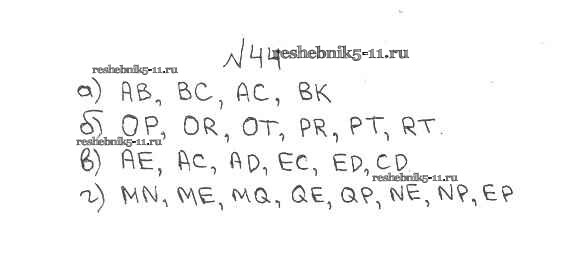 №44
reshebnik5-11.ru
reshebnik5-11.ru
а) AB, BC, AC, BK
б) OP, OR, OT, PR, PT, RT.
reshebnik5-11.ru
в) AE, AC, AD, EC, ED, CD
reshebnik5-11.ru
г) MN, ME, MQ, QE, QP, NE, NP, EP